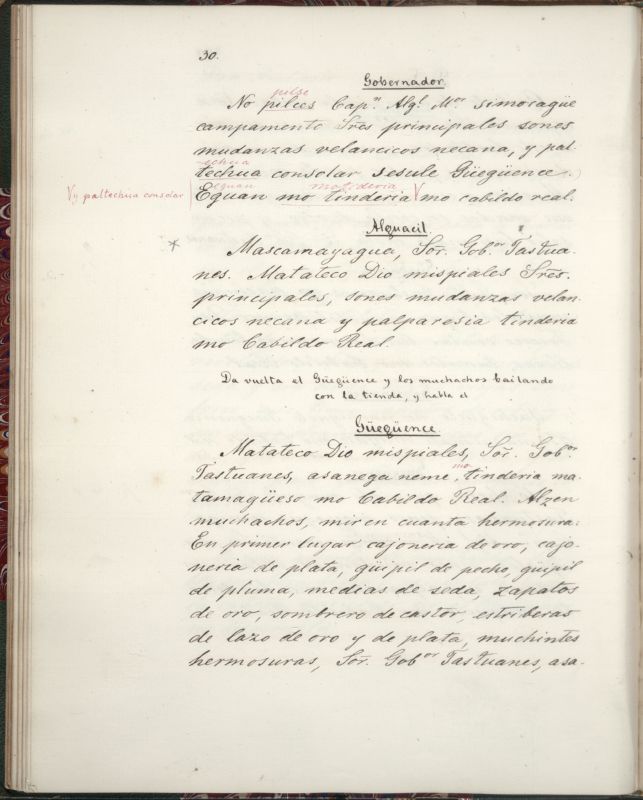 30.
Gobernador.
pilse
No pilces Capn. Algl. Mor. simoragüe
campamento Sres principales sones
mudanzas velancicos necana, y pal-
-echua
techua consolar sesule Güegüence.)
V y paltechua consolar
equan matideria
Equan mo tinderia V mo cabildo real.
Alguacil.
* Mascamayagua, Sor. Gobor. Tastua-
nes. Matateco Dio mispiales Sres.
principales, sones mudanzas velan-
cicos necana y palparesia tinderia
mo Cabildo Real.
Da vuelta el Güegüence y los muchachos bailando
con la tienda, y habla el
Güegüence.
Matateco Dio mispiales, Sor. Gobor
mo
Tastuanes, asanega neme, tinderia ma-
tamagüeso mo Cabildo Real. Alzen
muchachos, miren cuanta hermosura:
En primer lugar cajoneria de oro, cajo-
neria de plata, güipil de pecho, güipil
de pluma, medias de seda, zapatos
de oro, sombrero de castor, estriberas
de lazo de oro y de plata, muchintes
hermosuras, Sor. Gobor Tastuanes, asa-